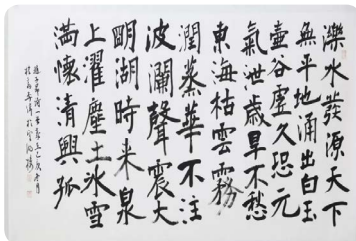 濼水發源天下
無平地涌出白玉
壺谷虛久恐元
氣泄歲旱不愁
東海枯雲霧
潤蒸華不注
波瀾聲震大
眀湖時来泉
上濯塵土冰雪
滿懷清興孤